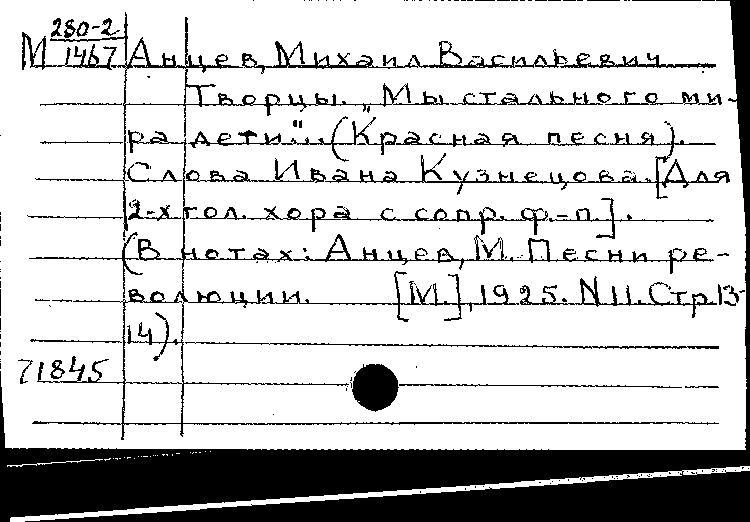 М 280-2/1467 Анцев, Михаил Васильевич
Творцы. „Мы стального ми-
ра дети"... (Красная песня).
Слова Ивана Кузнецова. [Для
2-х гол. хора с сопр. ф.-п.].
(В нотах: Анцев, М. Песни ре-
волюции. [М.], 1925. N 11. Стр 13-
14).
71845